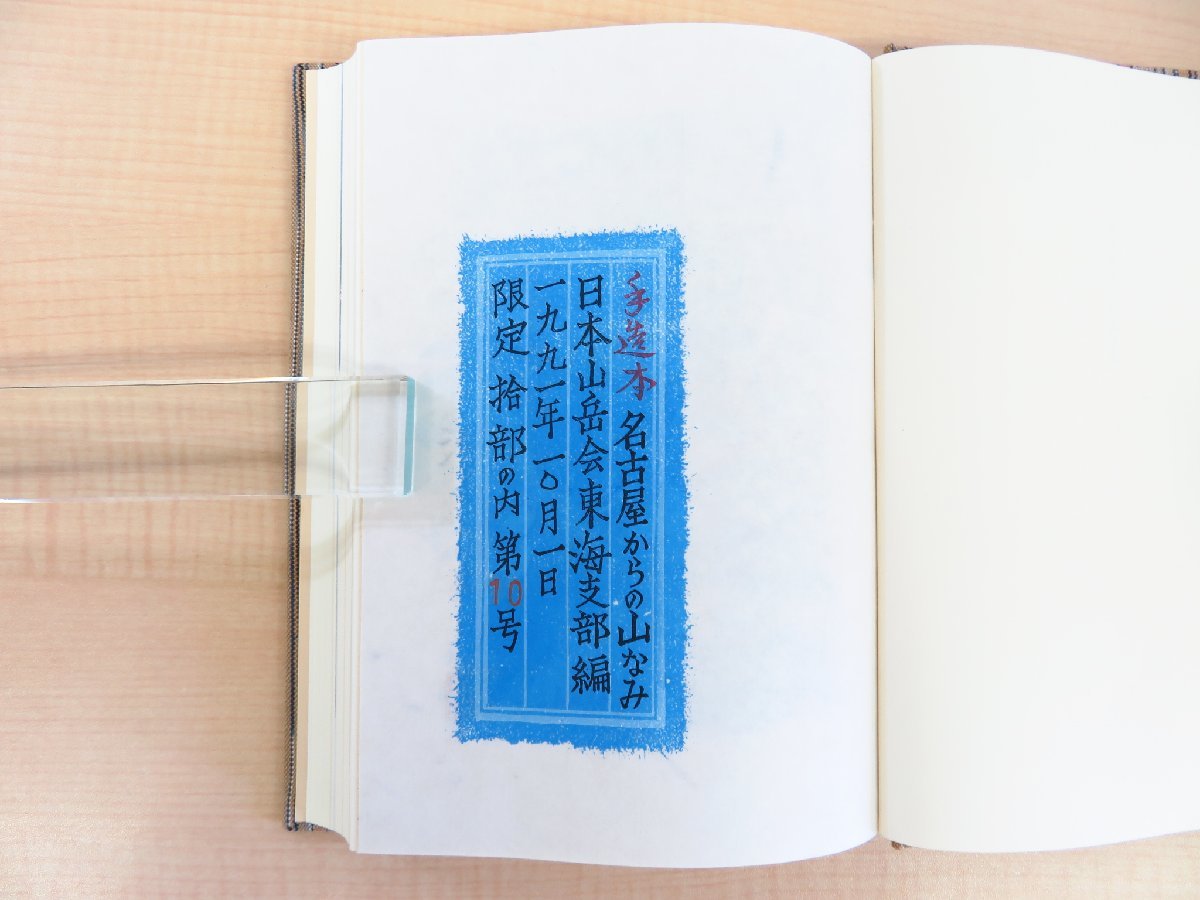 手造本 名古屋からの山なみ
日本山岳会東海支部編
一九九一年一〇月一日
限定 拾部の内 第10号